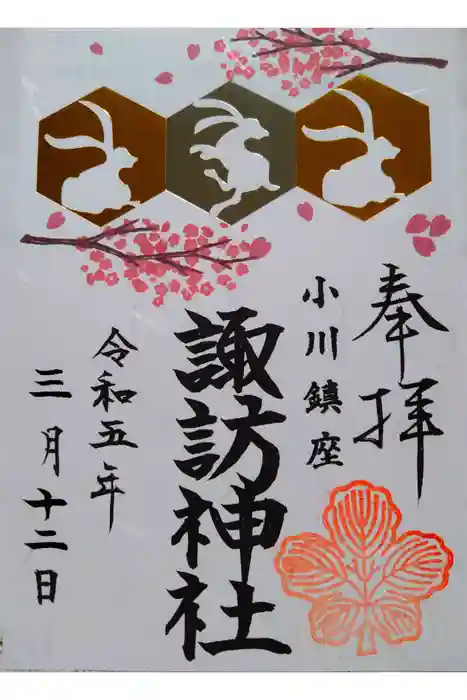 奉拝
小川鎮座
諏訪神社
令和五年
三月十二日